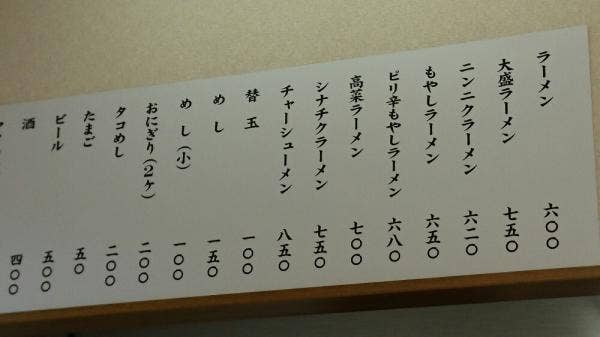 ラーメン 六〇〇
大盛ラーメン 七五〇
ニンニクラーメン 六二〇
もやしラーメン 六五〇
ピリ辛もやしラーメン 六八〇
高菜ラーメン 七〇〇
シナチクラーメン 七五〇
チャーシューメン 八五〇
替玉 一〇〇
めし 一五〇
めし(小) 一〇〇
おにぎり(2ケ) 二〇〇
タコめし 二〇〇
たまご 五〇
ビール 五〇〇
酒 四〇〇